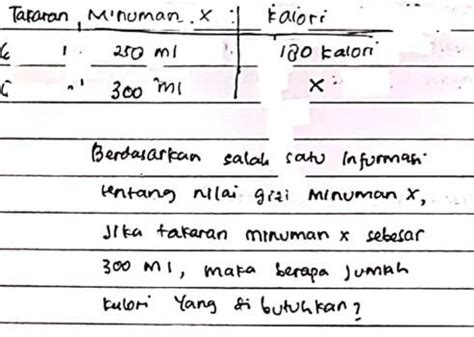 Takaran Minuman X : Kalori
250 ml 180 kalori
300 ml X
Berdasarkan salah satu informasi
tentang nilai gizi minuman X,
Jika takaran minuman x sebesar
300 ml, maka berapa Jumlah
kalori Yang di butuhkan?